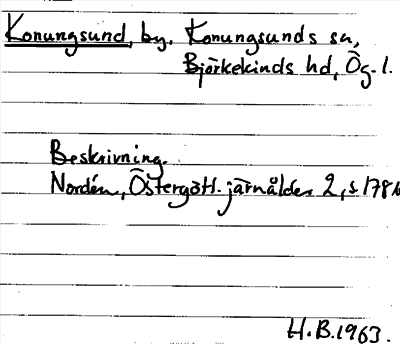 Konungsund, by. Konungsunds sn,
Björkekinds hd, Ög. l.
Beskrivning.
Nordén, Östergötl. järnålder 2, s. 178
H. B. 1963.